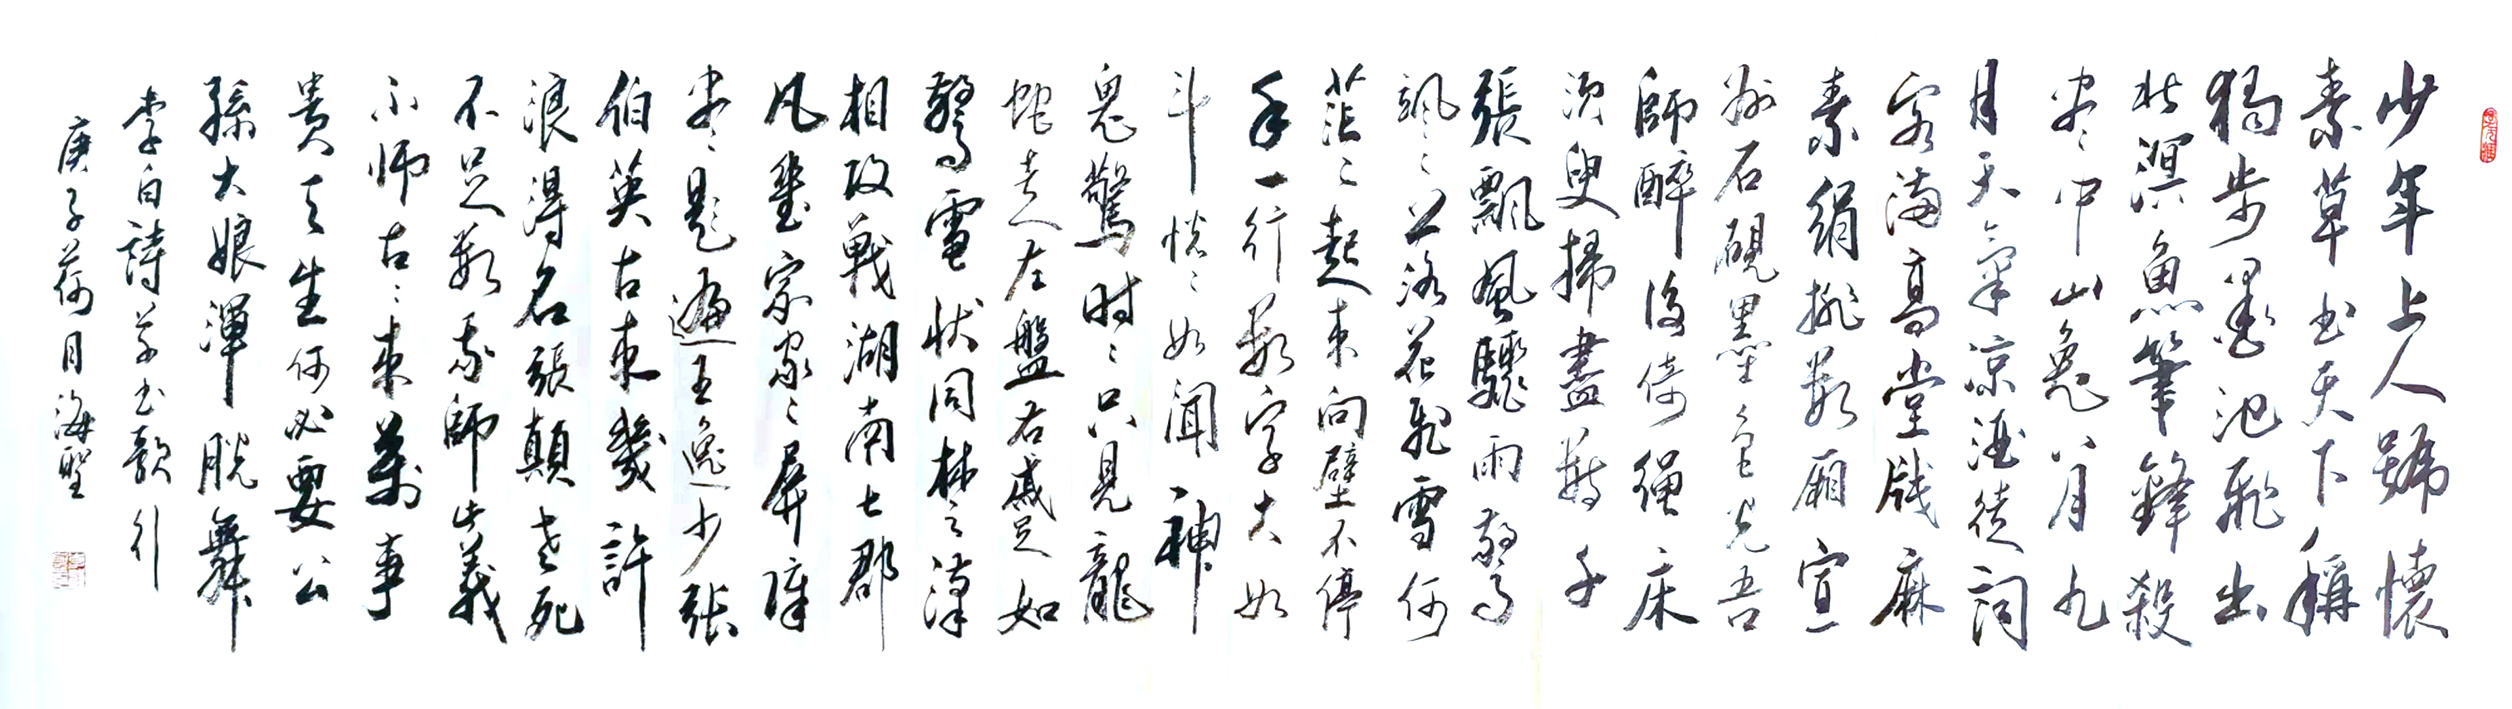 少年上人號懷
素草書天下稱
獨步墨池飛出
北溟魚筆鋒殺
盡中山兔八月九
月天氣凉酒徒詞
客滿高堂牋麻
素絹排數廂宣
州石硯墨色光吾
師醉後倚绳床
須臾掃盡數千
張飄風驟雨驚
颯〻落花飛雪何
茫〻起來向壁不停
手一行數字大如
斗怳〻如聞神
鬼驚時〻只見龍
蛇走左盤右蹙如
驚電狀同楚漢
相攻戰湖南七郡
凡幾家家〻屏障
書題遍王逸少張
伯英古來幾許
浪得名張顛老死
不足數我師此義
不师古〻來萬事
貴天生何必要公
孫大娘渾脫舞
李白詩草書歌行
庚子荷月海聖